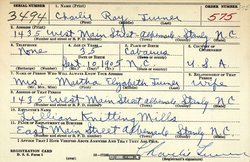 SERIAL NUMBER 1. NAME (Print) ORDER NUMBER
3494 Charlie Ray Turner 575
2. ADDRESS (Print)
1435 West Main Street Albemarle Stanly N.C
3. TELEPHONE 4. AGE IN YEARS 5. PLACE OF BIRTH 6. COUNTRY OF CITIZENSHIP
None Catawba
DATE OF BIRTH
Sept 10 N.C U.S.A
7. NAME OF PERSON WHO WILL ALWAYS KNOW YOUR ADDRESS 8. RELATIONSHIP OF THAT PERSON
Mrs. Martha Elizabeth Turner Wife
9. ADDRESS OF THAT PERSON
1435 West Main Street Albemarle Stanly N.C.
10. EMPLOYER'S NAME
Lillian Knitting Mills
11. PLACE OF EMPLOYMENT OR BUSINESS
East Main Street Albemarle Stanly N.C.
I AFFIRM THAT I HAVE VERIFIED ABOVE ANSWERS AND THAT THEY ARE TRUE.
REGISTRATION CARD
D. S. S. Form 1
Charlie Turner